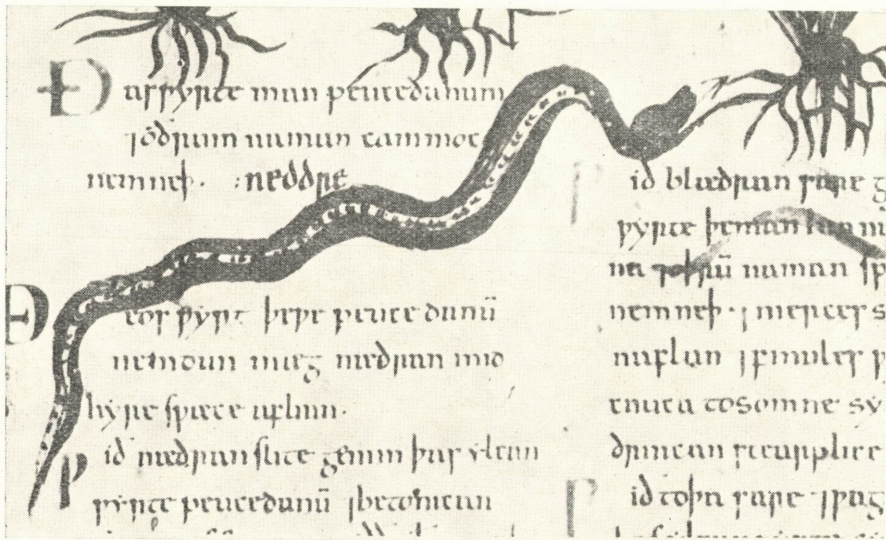 Ðas ƿyrte man peucedanum
⁊ oðrum naman cammoc
nemneþ · : næddre
Ðeos ƿyrt þe ƿe peucedanū
nemdun mæg nædran mid
hyre sƿæce aflian·
Ƿið nædran slite genim þas ylcan
ƿyrte peucedanū ⁊ betonican
Ƿið blædran sare g
ƿyrte þe man
naman
nemneþ · ⁊ merces
naflan ⁊
cnuca tosomne sy
drincan
Ƿið toþa sare ⁊ ƿag